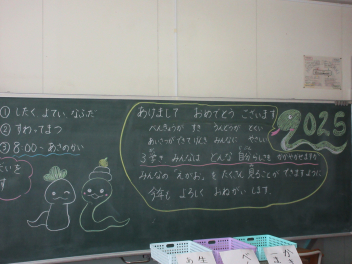 ① したく、よてい、なふだ
② すわってまつ
③ 8:00～ あさのかい
あけまして おめでとう ございます
べんきょうが すき うんどうが とくい
あいさつができて りんき みんなに やさしい
3学き みんなは どんな 自分らしさを かがやかせますか
みんなの「えがお」を たくさん 見ることが できますように
今年も よろしく おねがい します。
2025